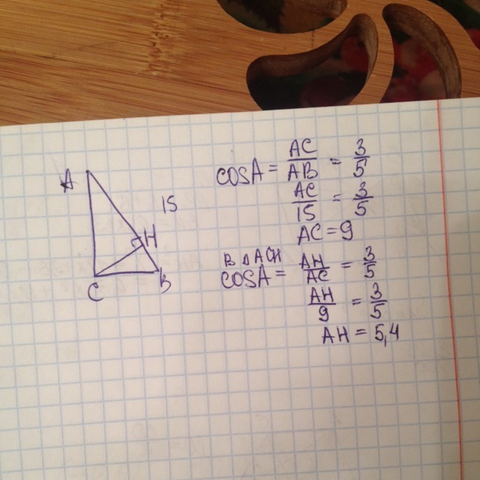 A
15
H
C
B
cosA = AC/AB = 3/5
AC/15 = 3/5
AC = 9
В ΔACH
cosA = AH/AC = 3/5
AH/9 = 3/5
AH = 5,4